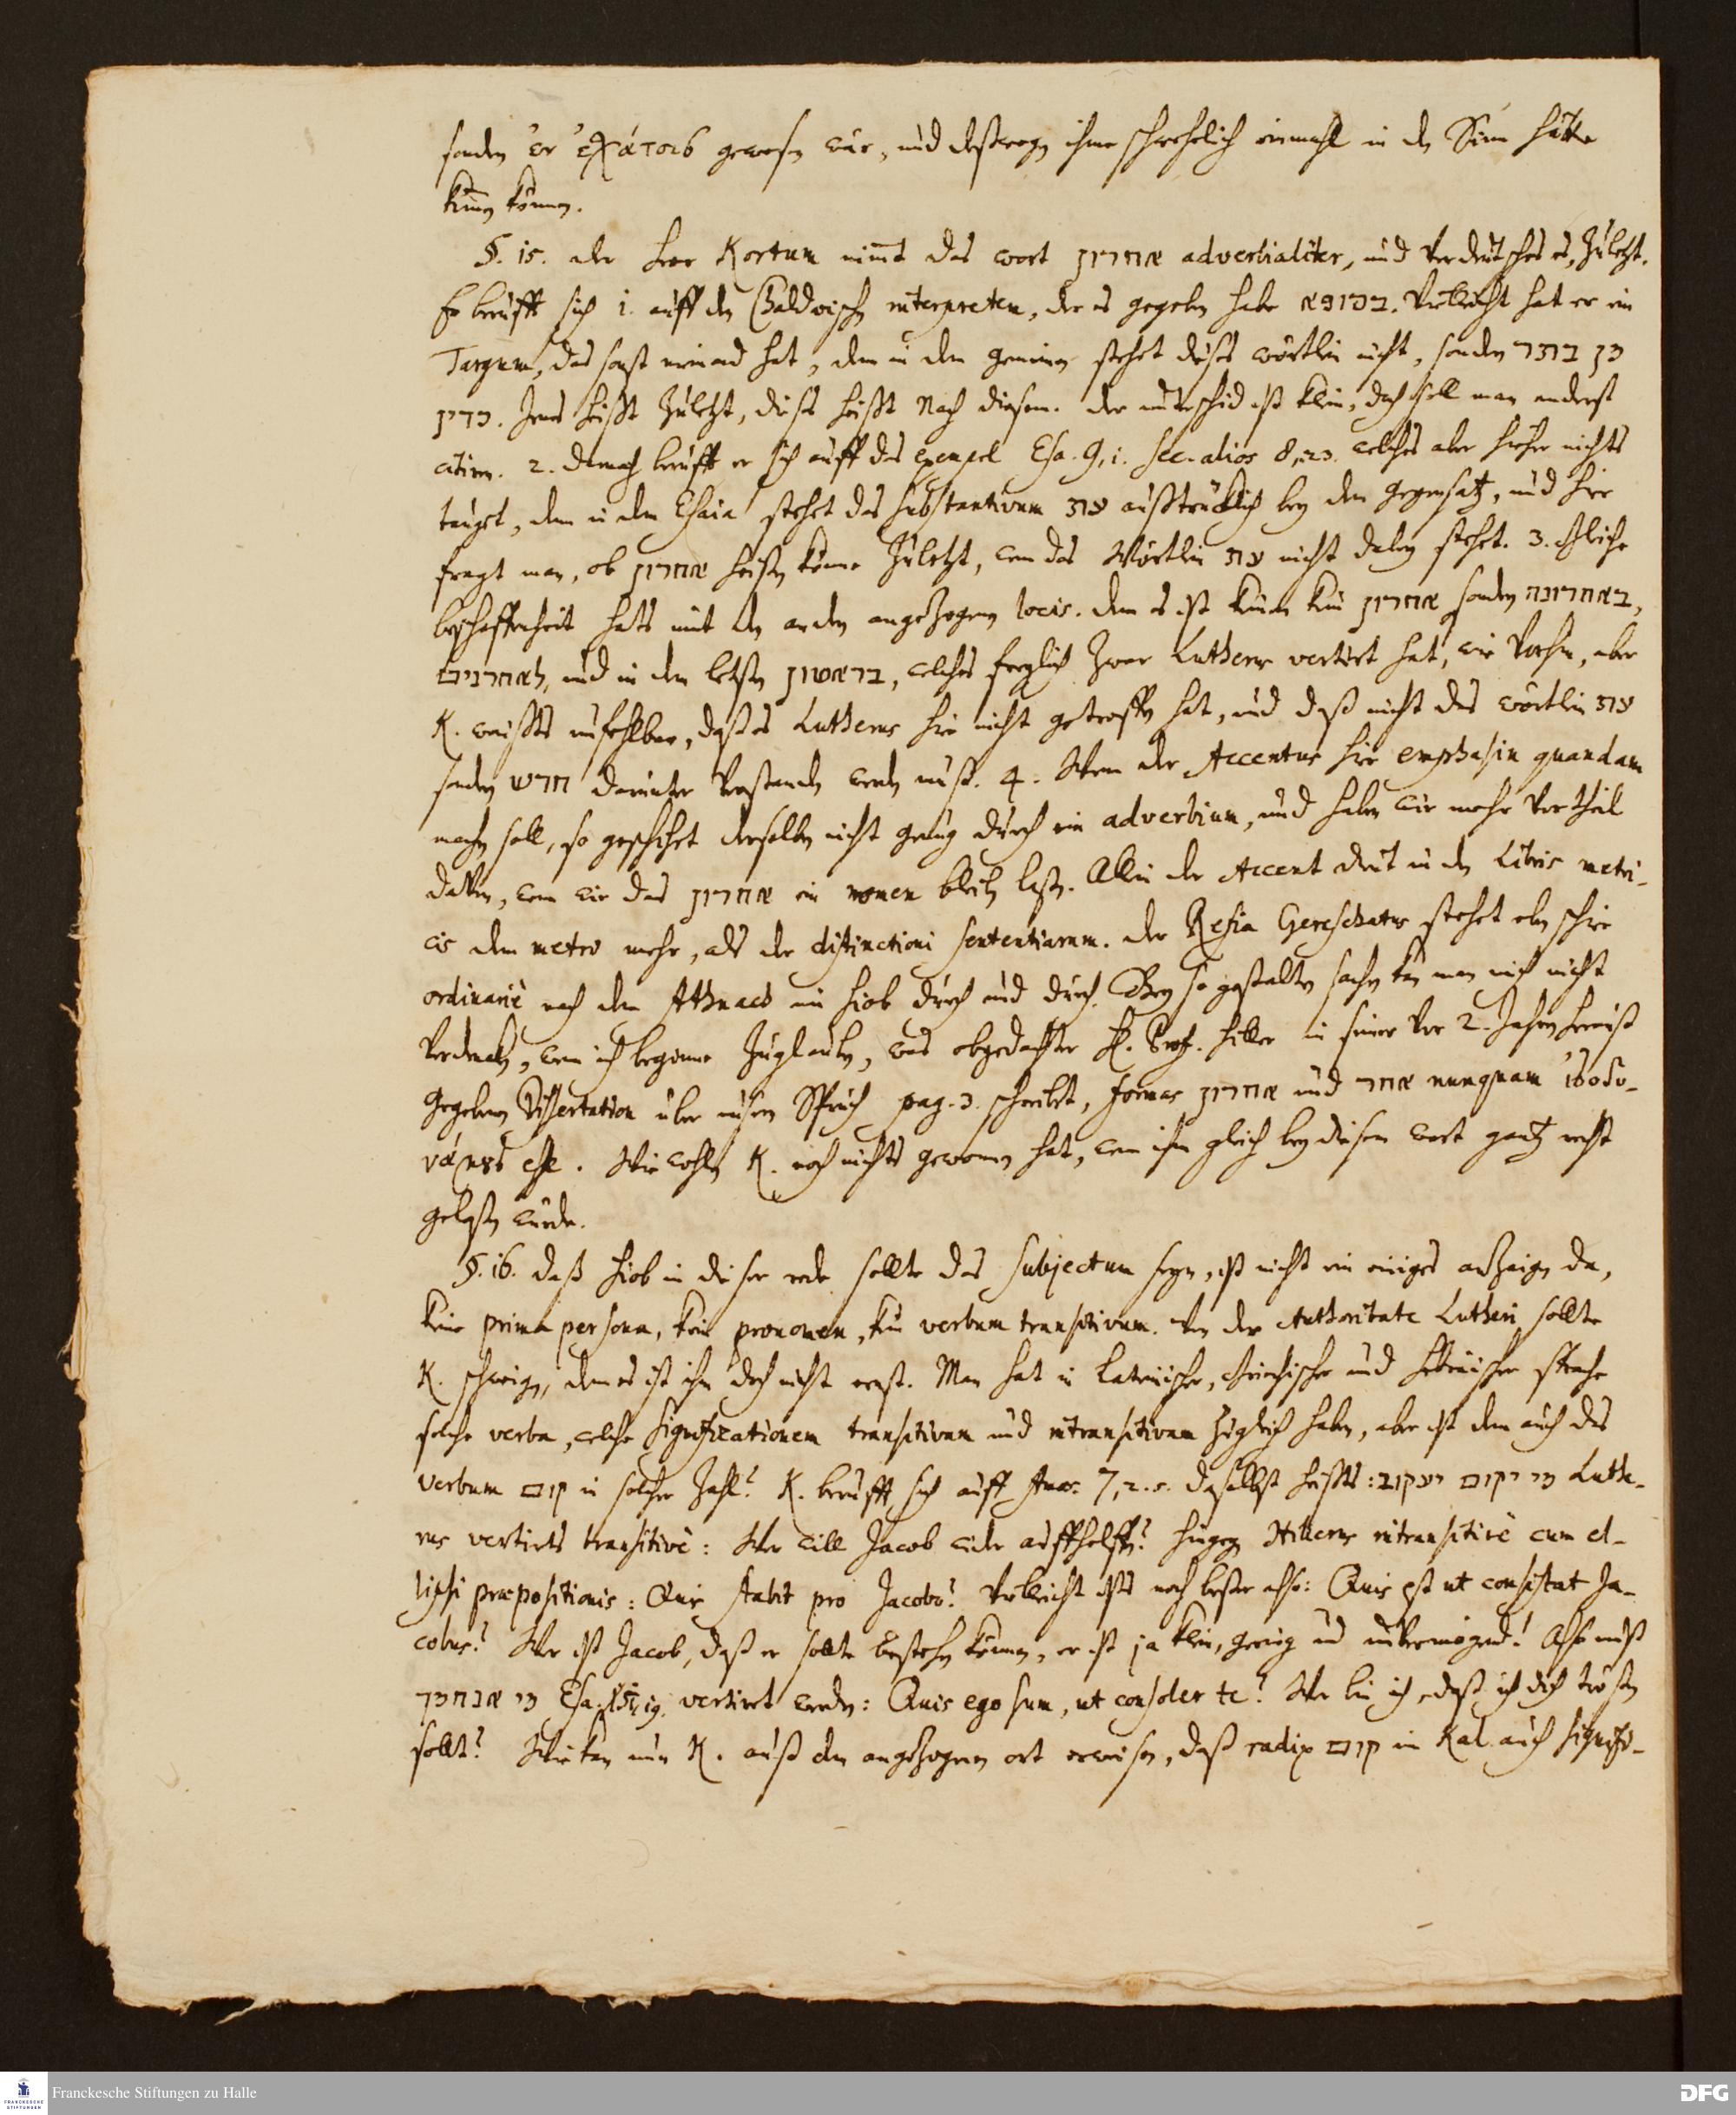 sondern ἐν ἐσχάτοις gewesen wäre, und deßwegen ihme schwehrlich einmahl in den Sinn hätte
kommen können.
§. 15. aber Herr Kortum nimmt das wort אחרון adverbialiter, und verdeutschet es, Zuletzt.
Er berufft sich 1. auff den Chaldeischen interpretem, der es gegeben habe בסופא. Vielleicht hat er ein
Targum, das sonst niemand hat, denn in dem gemeinen stehet dieses wörtlein nicht, sondern בתר כן
כדין. Jenes heißt Zuletzt, dieses heißt Nach diesem. der unterschid ist klein, doch soll man anderst
citiren. 2. darnach berufft er sich auff das exempel Esa. 9, 1. sec. alios 8, 23. welches aber hieher nichts
tauget, denn in dem Esaia stehet das substantivum עת außtrüklich bey dem gegensatz, und hie
fragt man, ob אחרון heißen könne Zuletzt, wenn das Wörtlein עת nicht dabey stehet. 3. Gleiche
beschaffenheit hats mit den andern angezogenen locis. denn es ist keinem kein אחרון sondern באחרונה,
לאחרנים, und in dem letsten בראשון, welches freylich zwar Lutherus vertirt hat, wie vorhin, aber
K. weißts unfehlbar, daß es Lutherus hie nicht getroffen hat, und daß nicht das wörtlein עת
sondern חדש darunter verstanden werden muß. 4. Wenn der Accentus hie emphasin quandam
machen soll, so geschihet derselben nicht genug durch ein adverbium, und haben wir mehr Vortheil
davon, wenn wir das אחרון ein nomen bleiben laßen. Allein der Accent dient in den Libris metri-
cis dem metro mehr, als der distinctioni sententiarum. der Refia Gereschatus stehet eben schier
ordinariè nach dem Athnach im Hiob durch und durch. Bey so gestalten sachen kan man mich nicht
verdencken, wenn ich beginne Zuglauben, was obgedachter H. Prof. Hiller in seiner vor 2. Jahren herauß
gegebenen Dissertation über unsern Spruch pag. 3. schreibt, formas אחרון und אחר nunquam ἰσοδυ-
νάμους esse. Wiewohlen K. noch nichts gewonnen hat, wenn ihm gleich bey diesem wort gantz recht
gelaßen würde.
§. 16. daß Hiob in dieser rede sollte das Subjectum seyn, ist nicht ein einiges anzeigen da,
keine prima persona, kein pronomen, kein verbum transitivum. Von der Authoritate Lutheri sollte
K. schweigen, denn es ist ihm doch nicht ernst. Man hat in Lateinischer, Griechischer und Hebräischer sprache
solche verba, welche significationem transitivam und intransitivam zugleich haben, aber ist denn auch das
verbum קום in solcher Zahl? K. berufft sich auff Amos. 7, 2. 5. daselbst heißts: מי יקום יעקוב Luthe-
rus vertirts transitivè: Wer will Jacob wider auffhelffen? hingegen Hillerus intransitivè cum el-
lipsi præpositionis: Quis stabit pro Jacobo? Vielleicht ists noch beßer also: Quis est ut consistat Ja-
cobus? Wer ist Jacob, daß er sollte bestehen können, er ist ja klein, gering und unvermögend! Also muß
מי אנחמך Esa. 51, 19. vertirt werden: Quis ego sum, ut consoler te? Wer bin ich, daß ich dich trösten
sollt? Wie kan nun K. auß dem angezogenen ort erweisen, daß radix קום in Kal auch signifi-
Franckesche Stiftungen zu Halle
DFG